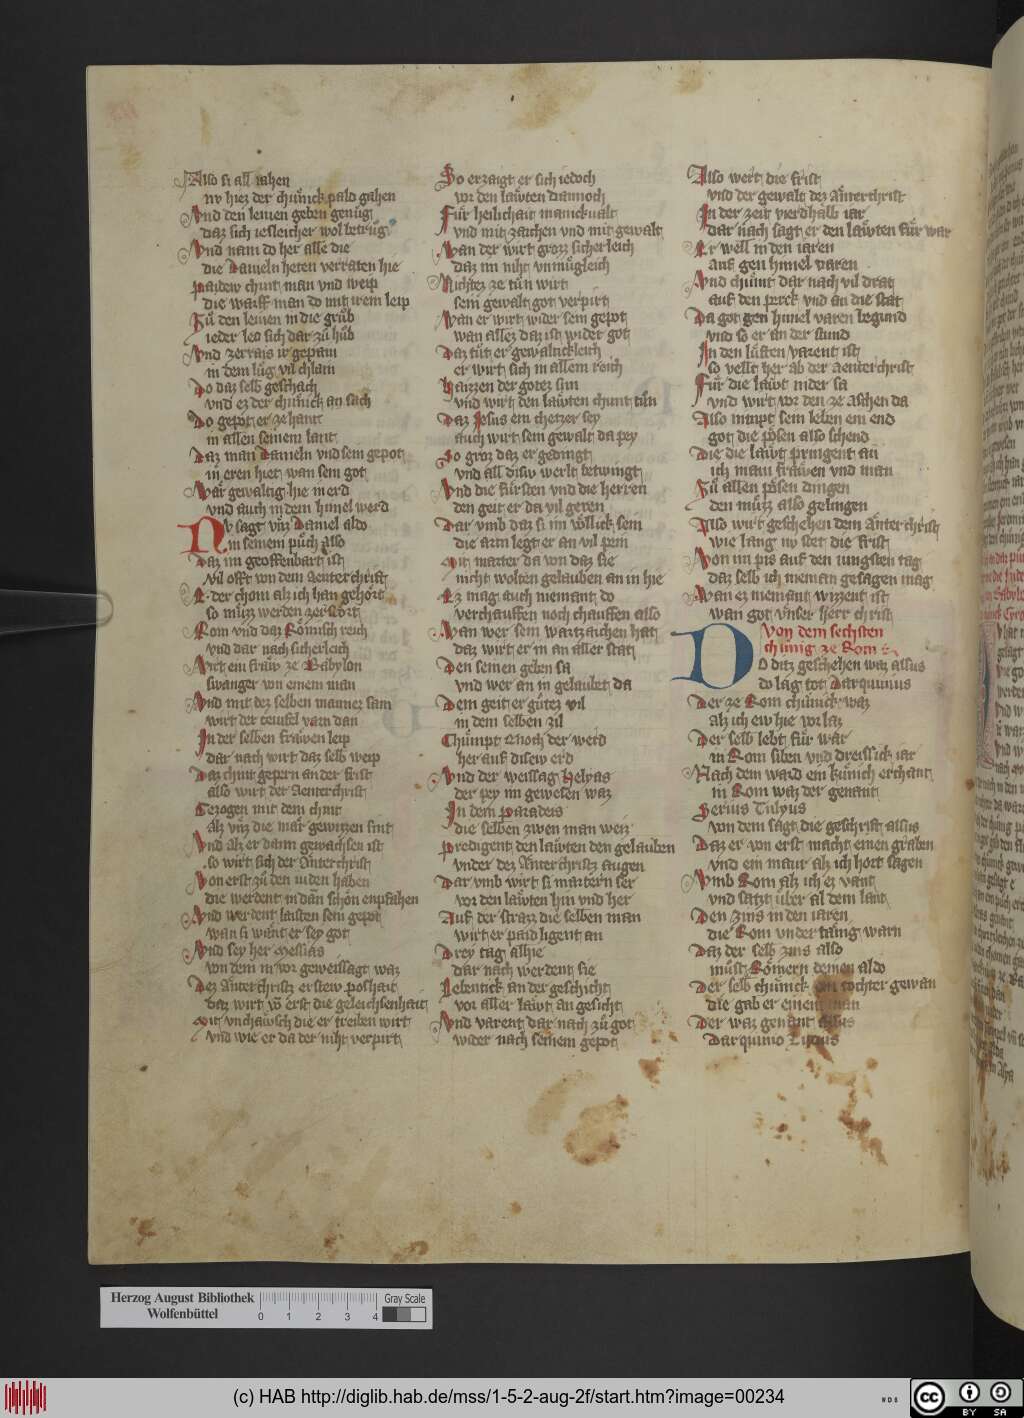 Also si all iahen
nv hiez der chünick pald gahen
Vnd den lewen geben genug
daz sich iesleicher wol betrug
Vnd nam do her alle die
die Danieln heten verraten hie
paidew chint man vnd weip
die warff man do mit irem leip
Fü den lewen in die grüb
ieder leo sich dar zü hüb
Vnd zerrais ir gepain
in dem lüg vil chlain
Do daz selb geschach
vnd ez der chünick an sach
Do gepot er ze hant
in allen seinem lant
Daz man Danieln vnd sein gepot
in eren hiet wan sein got
War gewaltig hie in erd
vnd auch in dem himel werd
Nv sagt vnz Daniel aldo
in seinem püch also
Daz im geoffenbart ist
vil offt von dem Aenterchrist
Er der chom alz ich han gehört
so müz werden zerstört
Rom vnd daz Römisch reich
vnd dar nach sicherleich
Wirt ein fraw ze Babylon
swanger von einem man
Vnd mit dez selben mannez sam
wirt der teufel varn dan
In der selben frawen leip
dar nach wirt daz selb weip
Daz chint gepern an der frist
also wirt der Aenterchrist
Gezogen mit dem chint
Alz vnz die mär gewizzen sint
Vnd alz er dann gewachsen ist
so wirt sich der Anterchrist
Von erst zü den iuden haben
die werdent in dan schon enpfahen
Vnd werdent laisten sein gepot
wan si wänt er sey got
Vnd sey her Messias
von dem in vor geweissagt waz
Dez Anterchristz erstew poshait
daz wirt vö erst die geleichsenhait
Mit vnchawsch die er treiben wirt
vnd wie er da der niht verpirt
So erzaigt er sich iedoch
vor den läwten dannoch
Für heilichait manickualt
vnd mit zaichen vnd mit gewalt
Wan der wirt grozz sicherleich
daz im niht vnmügleich
Nichtez ze tün wirt
sein gewalt got verpirt
Wan er wirt wider sein gepot
wan allez daz ist wider got
Daz tüt er gewaltickleich
er wirt sich in allem reich
Haizzen der gotez sun
vnd wirt den läwten chunt tün
Daz Jesus ein chetzer sey
auch wirt sein gewalt da pey
So groz daz er gedingt
vnd all disw werlt betwingt
Vnd die fürsten vnd die herren
den geit er da vil geren
Dar vmb daz si im völlick sein
die arm legt er an vil pein
Mit marter da von daz sie
nicht wolten gelauben an in hie
Ez mag auch niemant do
verchauffen noch chauffen also
Wan wer sein wartzaichen hat
daz wirt er in an aller stat
Den seinen geben sa
vnd wer an in gelaubet da
Dem geit er gütez vil
in dem selben zil
Chümpt Enoch der werd
her auf disew erd
Vnd der weissag Helyas
der pey im gewesen waz
In dem paradeis
die selben zwen man weiz
predigent den läwten den gelauben
vnder dez Anterchristz augen
Dar vmb wirt si martern ser
vor den läwten hin vnd her
Auf der strazz die selben man
wirt er paid ligent an
Drey tag alhie
dar nach werdent sie
Lebentick an der geschicht
vor aller läwt an gesicht
Vnd varent dar nach zü got
wider nach seinem gepot
Also wert die frist
vnd der gewalt dez Anterchrist
In der zeit vierdhalb iar
dar nach sagt er den läwten für war
Er well in den iaren
auf gen himel varen
Vnd chümt dar nach vil drat
auf den perck vnd an die stat
Da got gen himel varen begund
vnd so er an der stund
In den lüften varent ist
so vellt her ab der Aenterchrist
Für die läwt nider sa
vnd wirt vor den ze aschen da
Also nimpt sein leben ein end
got die pösen also schend
Die die läwt pringent an
ich main frawen vnd man
Fü allen pösen dingen
den müzz also gelingen
Also wirt geschehen dem Anterchrist
wie lang nv stet die frist
Von im piz auf den iungsten tag
daz selb ich nieman gesagen mag
Wan ez niemant wizzent ist
wan got vnser herr christ
Von dem sechsten
chünig ze Rom
Do daz geschehen waz alsus
do lag tot Darquinius
Der ze Rom chünick waz
alz ich ew hie vor laz
Der selb lebt für war
in Rom siben vnd dreissick iar
Nach dem ward ein künich erchant
in Rom waz der genant
Serius Tulyus
von dem sagt die geschrift alsus
Daz er von erst macht einen graben
vnd ein maur alz ich hort sagen
Vmb Rom alz ich ez vant
vnd satzt über al dem lant
Den zins in den iaren
die Rom vnder tänig warn
Daz der selb zins also
müst Römern dienen aldo
Der selb chünick ein tochter gewan
die gab er einem man
Der waz genant alsus
Darquinio Lucius
Herzog August Bibliothek
Wolfenbüttel
0 1 2 3 4
Gray Scale
(c) HAB http://diglib.hab.de/mss/1-5-2-aug-2f/start.htm?image=00234
WDB
CC BY SA